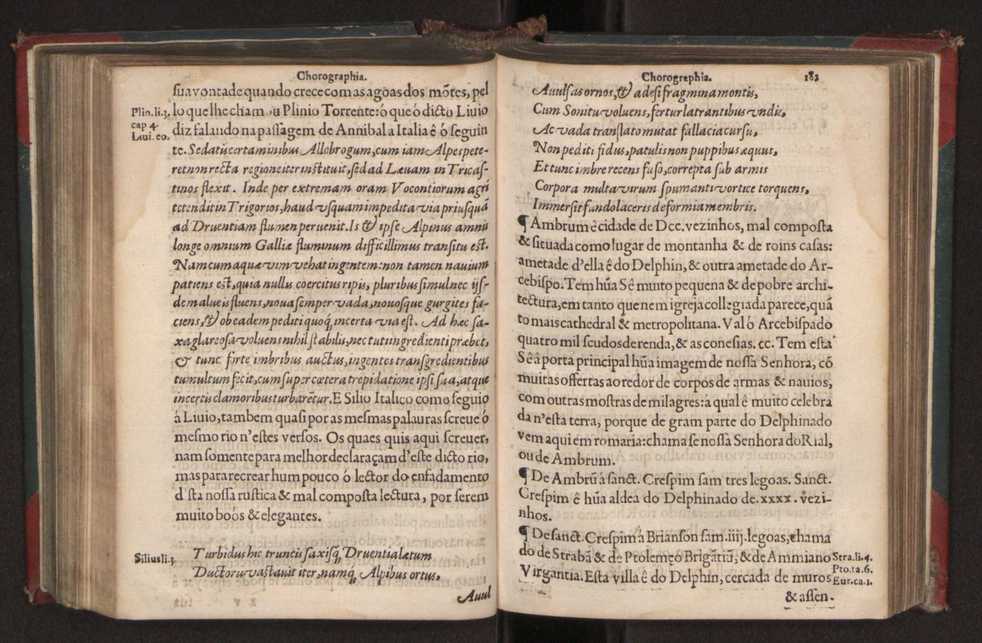 Chorographia.
sua vontade quando crece com as agoas dos mõtes, pel
Plin. li. 3. lo que lhe cham ou Plinio Torrente: ó que ó dicto Liuio
cap 4. diz falando na passagem de Annibal a Italia ê ó seguin
Liui. eo. te. Sedatis certaminibus Allobrogum, cum iam Alpes pete-
ret non recta regione iter instituit, sed ad Læuam in Tricas-
tinos flexit. Inde per extremam oram Vocontiorum agri
tetendit in Trigorios, haud vsquam impedita via priusquã
ad Druentiam flumen peruenit. Is & ipse Alpinus amnis
longe omnium Galliæ fluminum difficillimus transitu est.
Nam cum aquæ vim vehat ingentem: non tamen nauium
patiens est, quia nullis coercitus ripis, pluribus simul nec ijs-
dem alueis fluens, noua semper vada, nouosque gurgites fa-
ciens, & ob ea dem pediti quoq; incerta via est. Ad hæc sa-
xa glareosa voluens nihil stabile, nec tuti ingredienti præbet,
& tunc forte imbribus auctus, ingentes transgredientibus
tumultum fecit, cum super cœtera trepidatione ipsi sua, atque
incertis clamoribus turbarẽtur. E Silio Italico como seguio
á Liuio, tambem quasi por as mesmas palauras screue ó
mesmo rio n'estes versos. Os quaes quis aqui screuer,
nam somente para melhor declaraçam d'este dicto rio,
mas para recrear hum pouco ó lector do enfadamento
d'sta nossa rustica & mal composta lectura, por serem
muito boós & elegantes.
Silius li. 3. Turbidus hic truncis saxisq; Druentia lætum
Ductoru vastauit iter, namq; Alpibus ortus,
Auul
Chorographia. 182
Auulsas ornos, & adesi fragmina montis,
Cum Sonitu voluens, fertur latrantibus vndis,
Ac vada translato mutat fallacia cursu,
Non pediti fidus, patulis non puppibus æquus,
Et tunc imbre recens fuso, correpta sub armis
Corpora multa virum spumanti vortice torquens,
Immersit fundo laceris deformia membris.
¶ Ambrum ê cidade de Dcc. vezinhos, mal composta
& situada como lugar de montanha & de roins casas:
ametade d'ella ê do Delphin, & outra ametade do Ar-
cebispo. Tem hũa Sê muito pequena & de pobre archi-
tectura, em tanto que nem igreja collegiada parece, quã
to mais cathedral & metropolitana. Val ó Arcebispado
quatro mil scudos de renda, & as conesias. cc. Tem esta
Sê á porta principal hũa imagem de nossa Senhora, cõ
muitas offertas ao redor de corpos de armas & nauios,
com outras mostras de milagres: á qual ê muito celebra
da n'esta terra, porque de gram parte do Delphinado
vem aqui em romaria: chama se nossa Senhora do Rial,
ou de Ambrum.
¶ De Ambrũ á sanct. Crespim sam tres legoas. Sanct.
Crespim ê hũa aldea do Delphinado de. xxxx. vezi-
nhos.
¶ De sanct. Crespim á Brianson sam. iiij. legoas, chama
do de Strabã & de Ptolemęo Brigãtiũ, & de Ammiano Stra. li. 4.
Virgantia. Esta villa ê do Delphin, cercada de muros Pto. ta. 6.
Eur. ca. 1.
& assen-